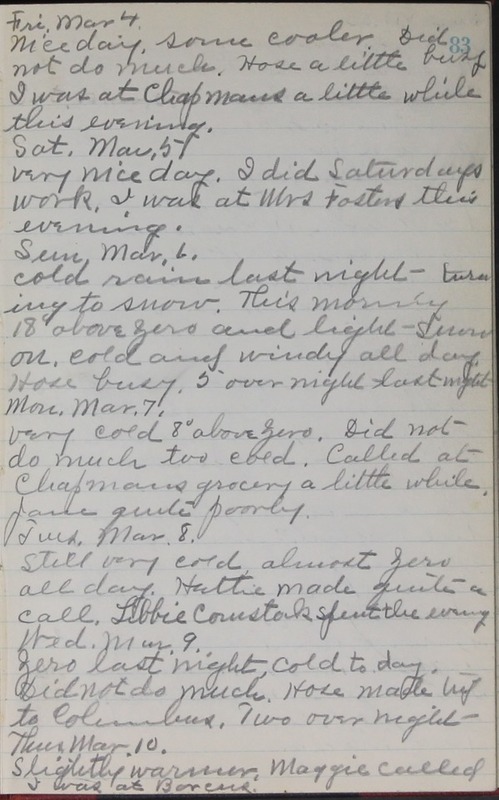 83
Fri, Mar 4.
Nice day, some cooler. Did
not do much. Hose a little busy
I was at Chapmans a little while
this evening.
Sat. Mar, 5
very nice day. I did Saturdays
work. I was at Mrs Fosters this
evening.
Sun, Mar, 6.
cold rain last night - turn
ing to snow. This morning
18° above zero and light - Snow
on. cold and windy all day
Hose busy. 5 over night last night
Mon. Mar, 7,
very cold 8° above zero. Did not
do much too cold. Called at
Chapmans grocery a little while.
Jane quite poorly.
Tues. Mar. 8.
Still very cold, almost zero
all day. Hattie made quite a
call. Libbie Comstock spent the eveng
Wed. Mar. 9.
Zero last night, cold to day.
Did not do much. Hose made trip
to Columbus. Two over night
Thus, Mar. 10.
Slightly warmer. Maggie called
I was at